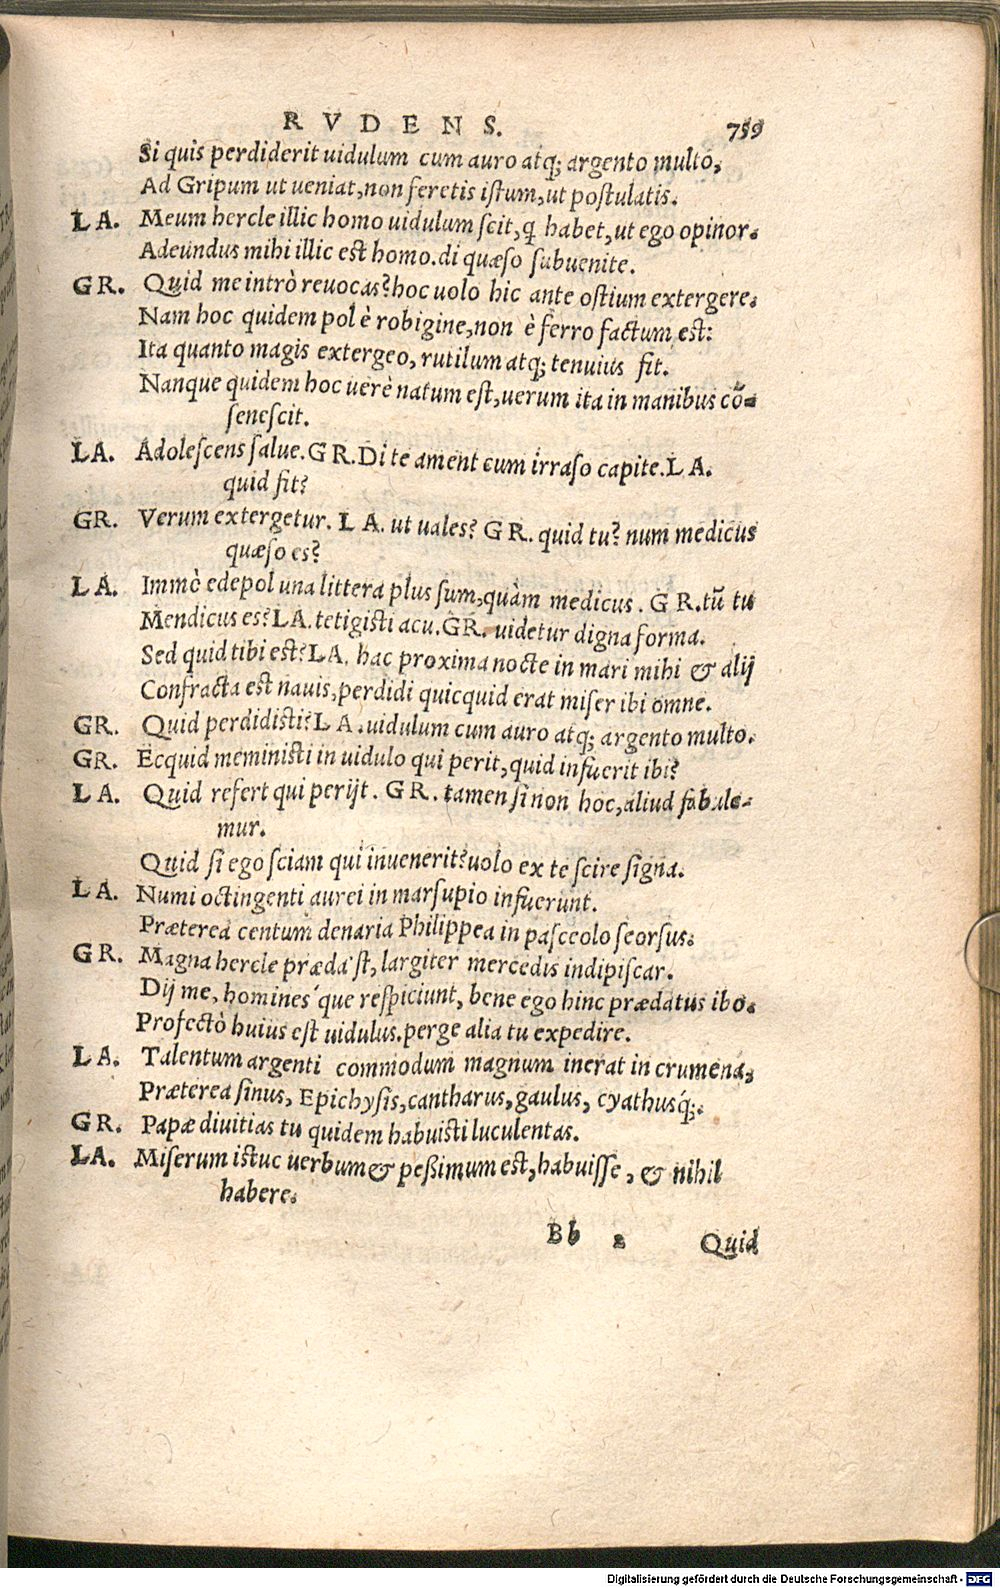 RVDENS. 759
Si quis perdiderit uidulum cum auro atq; argento multo,
Ad Gripum ut ueniat, non feretis istum, ut postulatis.
LA. Meum hercle illic homo uidulum scit, q habet, ut ego opinor.
Adeundus mihi illic est homo. di quæso subuenite.
GR. Quid me intrò reuocas? hoc uolo hic ante ostium extergere.
Nam hoc quidem pol è robigine, non è ferro factum est:
Ita quanto magis extergeo, rutilum atq; tenuius fit.
Nanque quidem hoc uerè natum est, uerum ita in manibus cō-
senescit.
LA. Adolescens salue. GR. Di te ament cum irraso capite. LA.
quid fit?
GR. Verum extergetur. LA. ut uales? GR. quid tu? num medicus
quæso es?
LA. Immò edepol una littera plus sum, quàm medicus. GR. tū tu
Mendicus es? LA. tetigisti acu. GR. uidetur digna forma.
Sed quid tibi est? LA. hac proxima nocte in mari mihi & alij
Confracta est nauis, perdidi quicquid erat miser ibi omne.
GR. Quid perdidisti? LA. uidulum cum auro atq; argento multo.
GR. Ecquid meministi in uidulo qui perit, quid infuerit ibi?
LA. Quid refert qui perijt. GR. tamen si non hoc, aliud fabule-
mur.
Quid si ego sciam qui inuenerit? uolo ex te scire signa.
LA. Numi octingenti aurei in marsupio infuerunt.
Præterea centum denaria Philippea in pasceolo seorsus.
GR. Magna hercle præda'st, largiter mercedis indipiscar.
Dij me, homines'que respiciunt, bene ego hinc prædatus ibo.
Profectò huius est uidulus. perge alia tu expedire.
LA. Talentum argenti commodum magnum inerat in crumena,
Præterea sinus, Epichysis, cantharus, gaulus, cyathusq́;.
GR. Papæ diuitias tu quidem habuisti luculentas.
LA. Miserum istuc uerbum & peßimum est, habuisse, & nihil
habere.
Bb 2 Quid
Digitalisierung gefördert durch die Deutsche Forschungsgemeinschaft - DFG